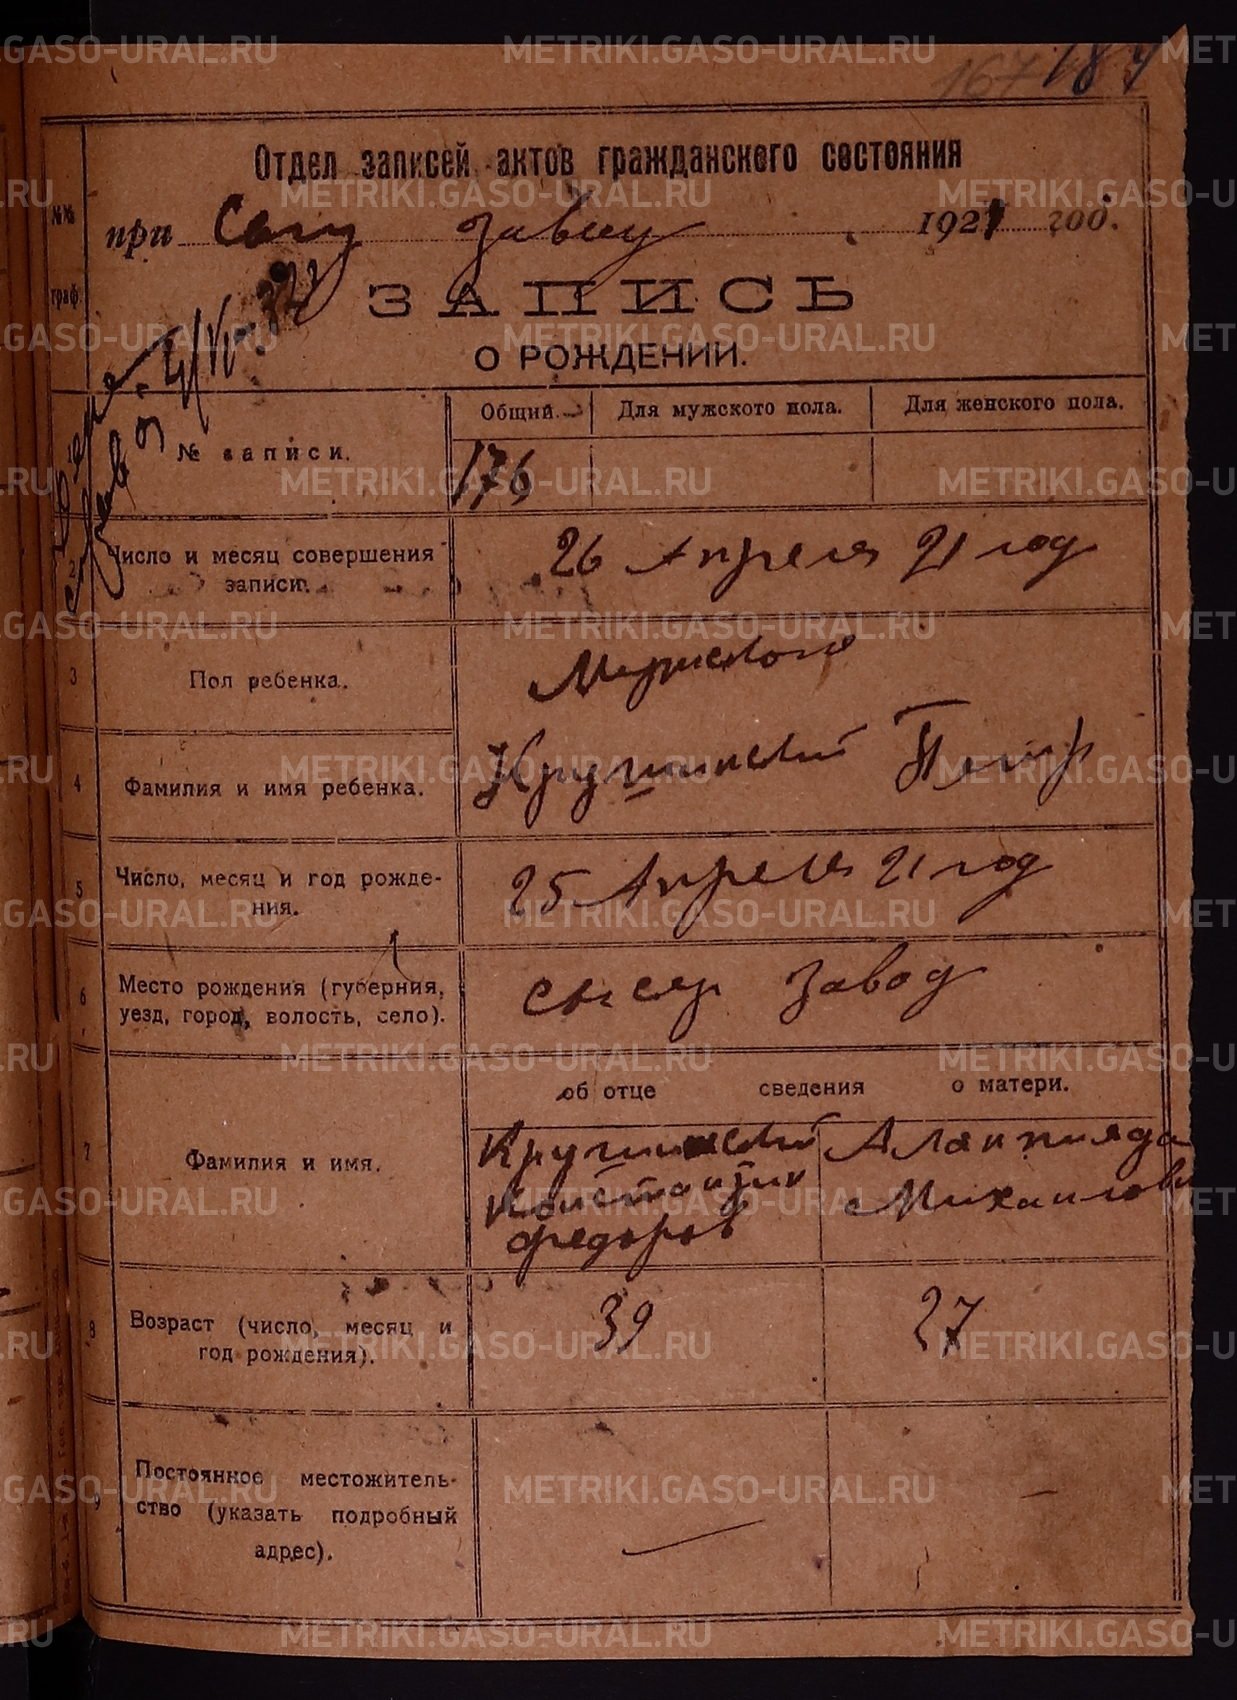 167 187
Отдел записей актов гражданского состояния
№№
при заводу 1921 год.
граф.
ЗАПИСЬ
О РОЖДЕНИИ.
Общий. Для мужского пола. Для женского пола.
№ записи.
176
2 Число и месяц совершения
записи.
26 Апреля 21 год
3 Пол ребенка.
Мужского
4 Фамилия и имя ребенка.
Кругшинский Петр
5 Число, месяц и год рожде-
ния.
25 Апреля 21 год
6 Место рождения (губерния,
уезд, город, волость, село).
Сысер завод
об отце сведения о матери.
7 Фамилия и имя.
Константин
Федоров
Михаилови
8 Возраст (число, месяц и
год рождения).
39 27
9 Постоянное местожитель-
ство (указать подробный
адрес).
METRIKI.GASO-URAL.RU